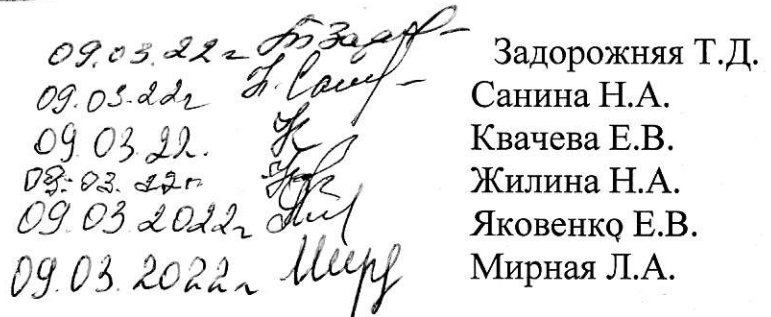 09.03.22г Задорожняя Т.Д.
09.03.22г Н. Сани Санина Н.А.
09.03.22. Квачева Е.В.
09.03.22г. Жилина Н.А.
09.03.2022г Яковенко Е.В.
09.03.2022г Мирн Мирная Л.А.